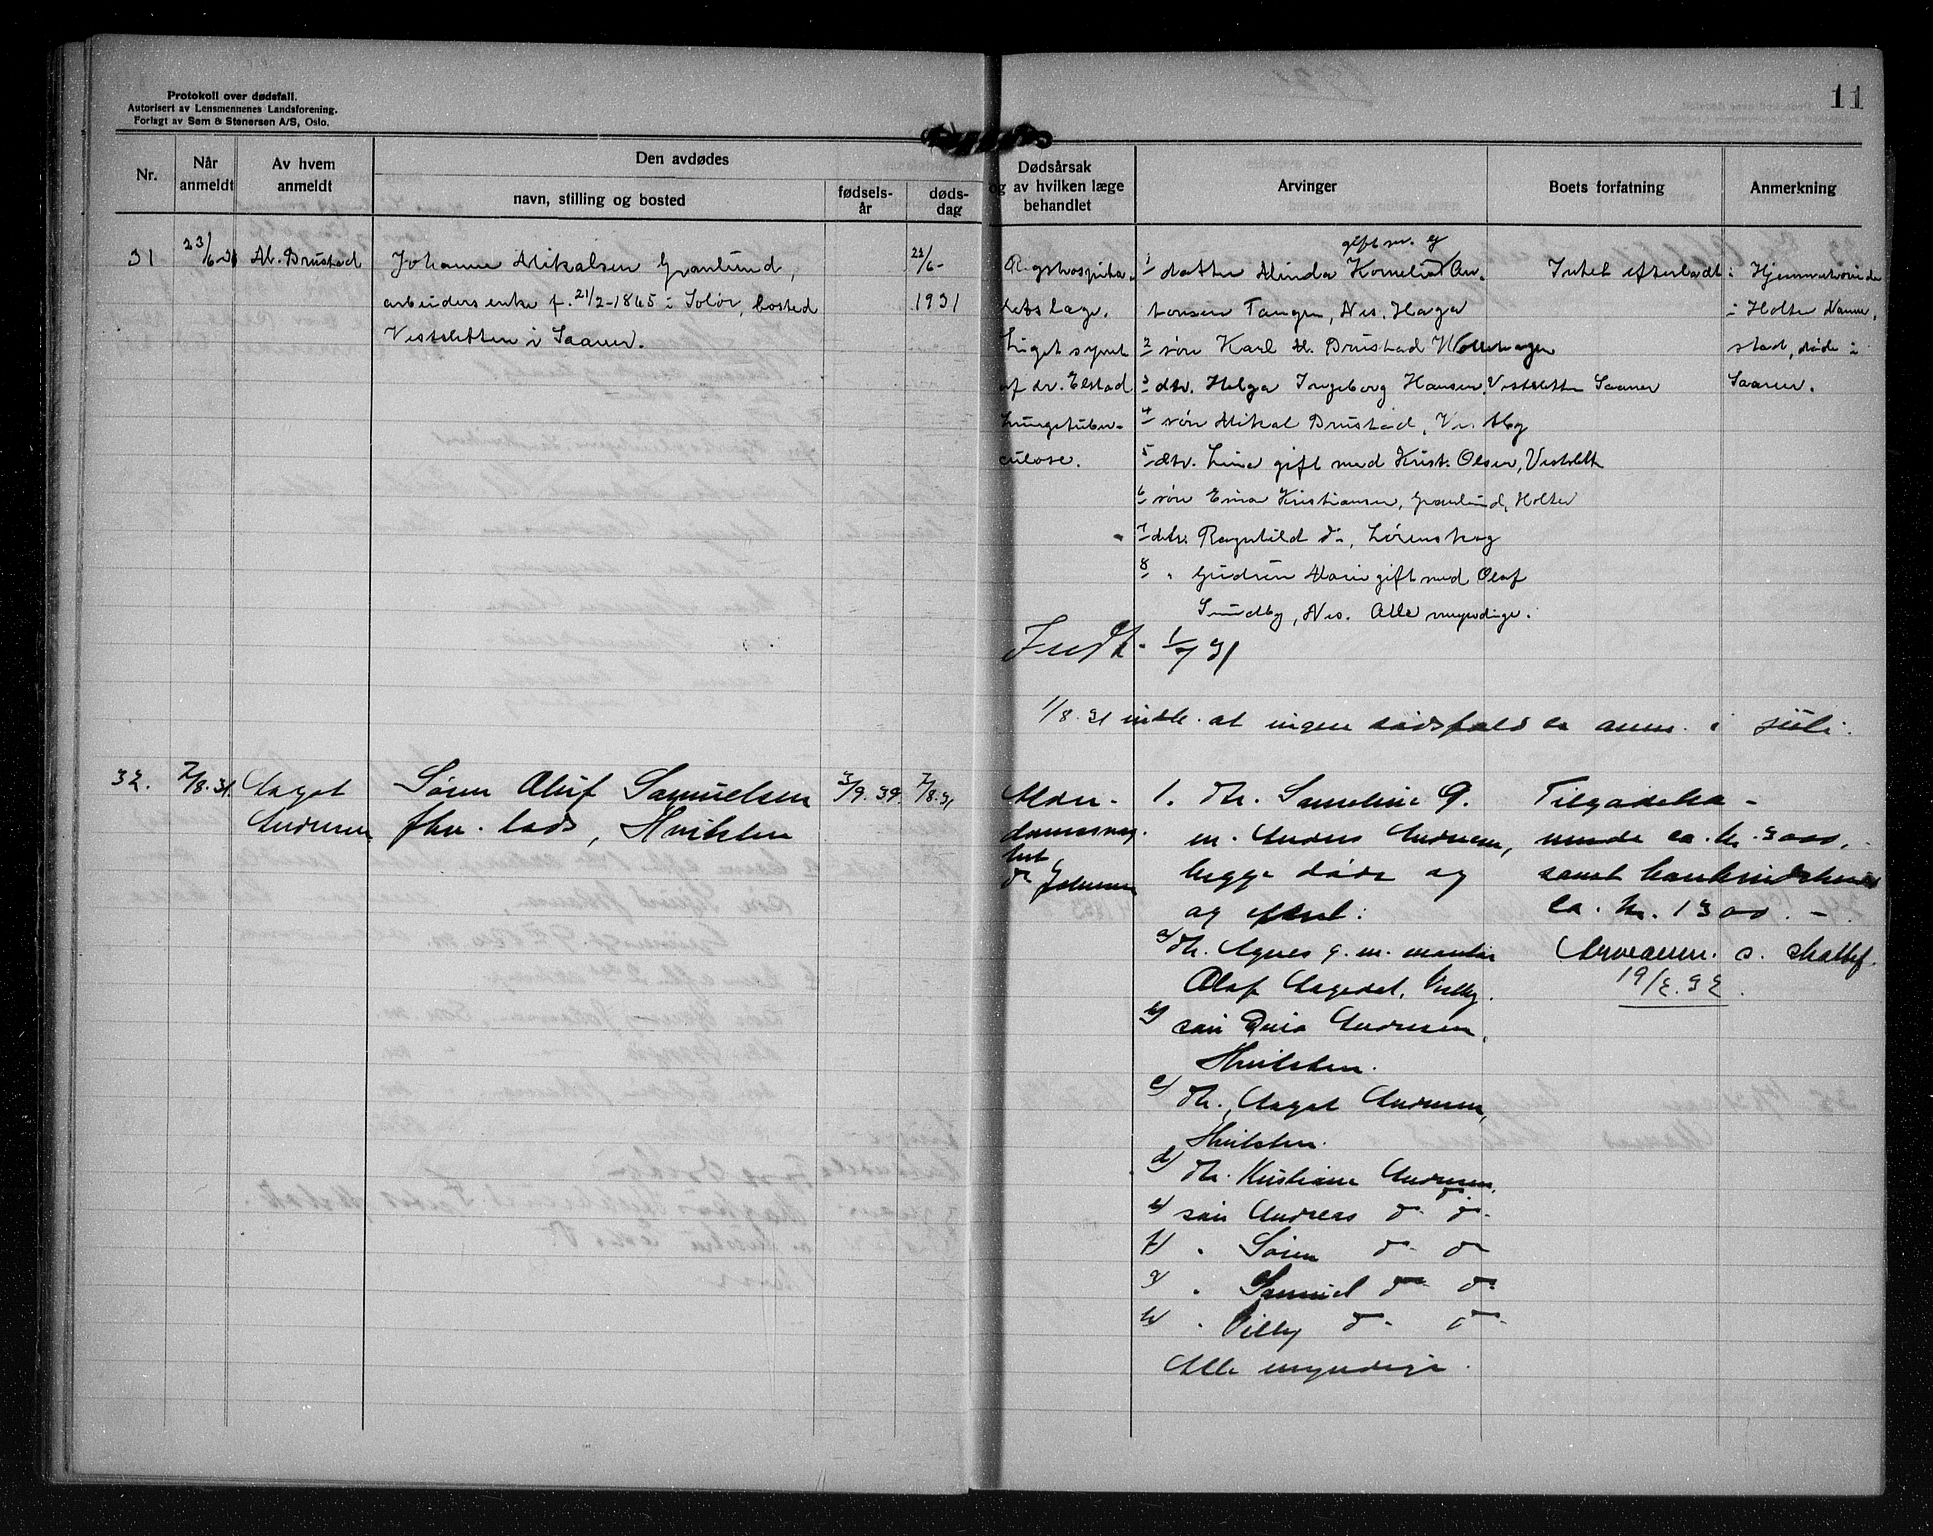 Protokoll over dødsfall.
Autorisert av Lensmennenes Landsforening.
Forlagt av Sem & Stenersen A/S, Oslo.
11
Nr.
Når anmeldt
Av hvem anmeldt
Den avdødes
navn, stilling og bosted
fødsels-år
døds-dag
Dødsårsak og av hvilken læge behandlet
Arvinger
Boets forfatning
Anmerkning
31
23/6-31
M. Brustad
Johanne Mikalsen Granlund,
arbeiders enke f. 21/2-1865 i Solør, bosted
Vestsletten i Saaner.
21/6-
1931
Rigshospita-
lets læge.
Liget synet
af dr. Elstad
Lungetuber-
culose.
gift m. ej
1 datter Minda Kornelia An-
tonsen Tangen, Nes, Haga
2 søn Karl M. Brustad
3 dtr. Helga Ingeborg Hansen, Vestsletten Saaner
4 søn Mikal Brustad, Vestby
5 dtr. Lina gift med Krist. Olsen, Vestslett
6 søn Einar Kristiansen, Granlund, Holter
7 dtr. Ragnhild do, Lørenskog
8 " Gudrun Marie gift med Olaf
Sundby, Nes. Alle myndige.
Intet efterladt
Hjemmehørende
i Holter Nanne-
stad, døde i
Saaner.
Indb. 1/7 31
1/8.31 indb. at ingen dødsfald er anm. i juli.
32.
7/8.31.
Aagot
Andresen
Søren Oluf Samuelsen
fhv. lods, Hvitsten
3/9.39.
7/8.31
Alder-
domssvag-
het
dr Johnsen
1. dtr. Samuline g.
m. Anders Andresen,
begge døde og
og efterl:
a/ dtr. Agnes g. m.
Olaf Aagedal,
b/ søn Andresen,
Hvitsten.
c/ dtr. Aagot Andresen,
Hvitsten.
d/ dtr. Kristiane Andresen,
e/ søn Andreas do do
f/ " Søren do do
g/ " Samuel do do
h/ " Villy do do
Alle myndige.
Tilgodeha-
vende ca. kr. 3000,-
samt bankindskud
ca. kr. 1300.-
Arveanm. s. skattef.
19/2.32.